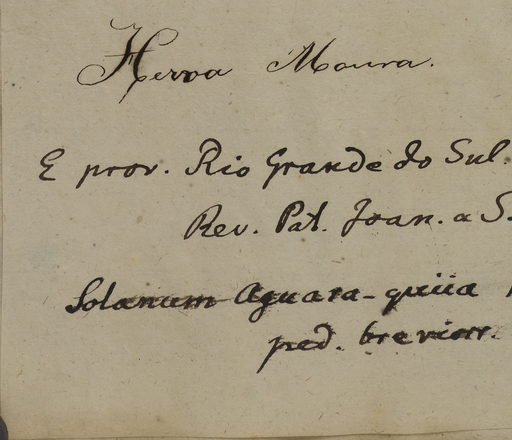 Herva Moura.
E prov. Rio Grande do Sul.
Rev. Pat. Joan. a S.
Solanum Aguara-quiia
ped. brevior.